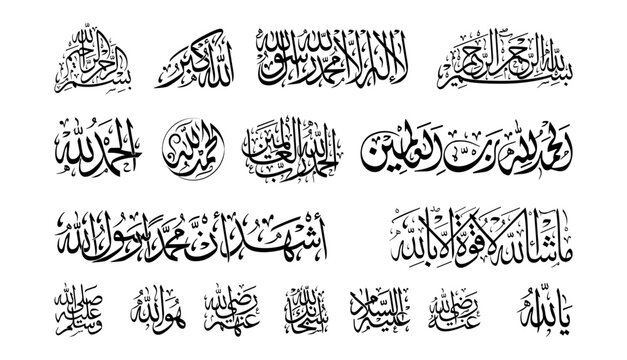 بسم الله الرحمن الرحيم
لا إله إلا الله محمد رسول الله
الله أكبر
بسم الله الرحمن الرحيم
الحمد لله رب العالمين
الحمد لله رب العالمين
الحمد لله
الحمد لله
ما شاء الله لا قوة إلا بالله
أشهد أن محمدا رسول الله
يا الله
رضي الله عنه
عليه السلام
سبحان الله
رضي الله عنهم
هو الله
صلى الله عليه وسلم